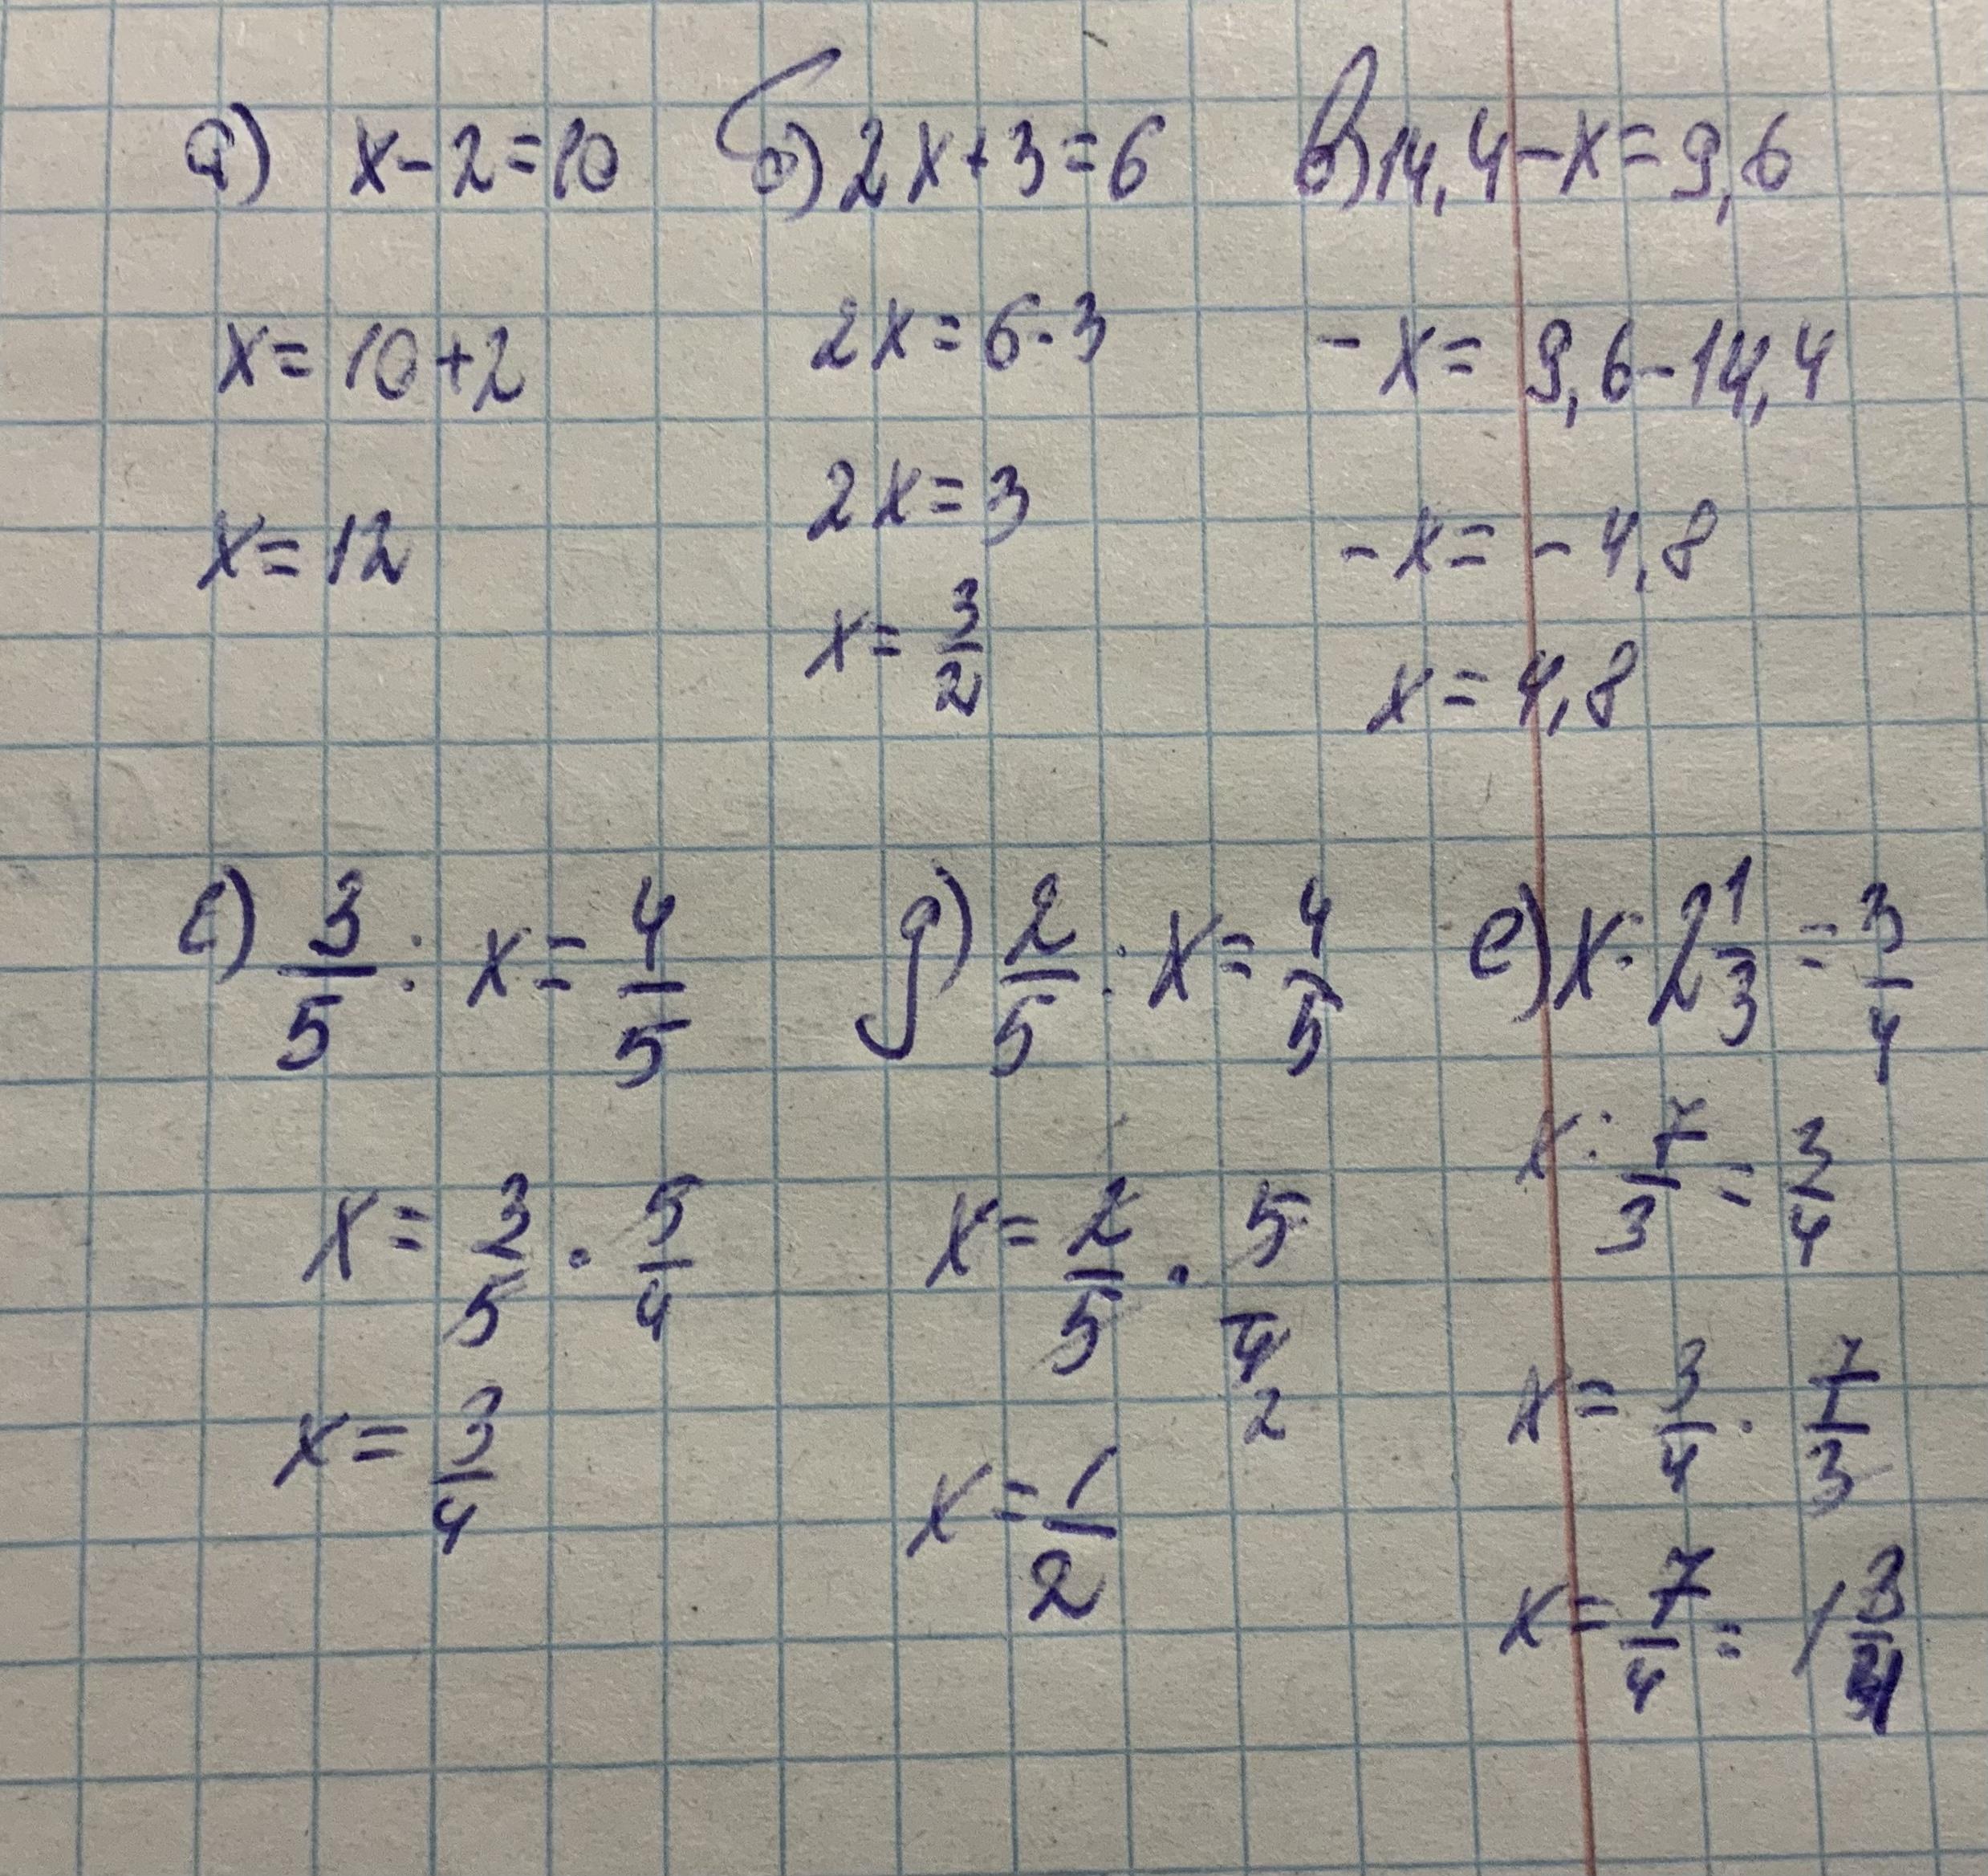 а) x-2=10
x=10+2
x=12
б) 2x+3=6
2x=6-3
2x=3
x=3/2
в) 14,4-x=9,6
-x=9,6-14,4
-x=-4,8
x=4,8
г) 3/5 : x=4/5
x=3/5 · 5/4
x=3/4
д) 2/5 : x=4/5
x=2/5 · 5/4
2
x=1/2
е) x : 2 1/3 = 3/4
x : 7/3 = 3/4
x=3/4 · 7/3
x=7/4 = 1 3/4